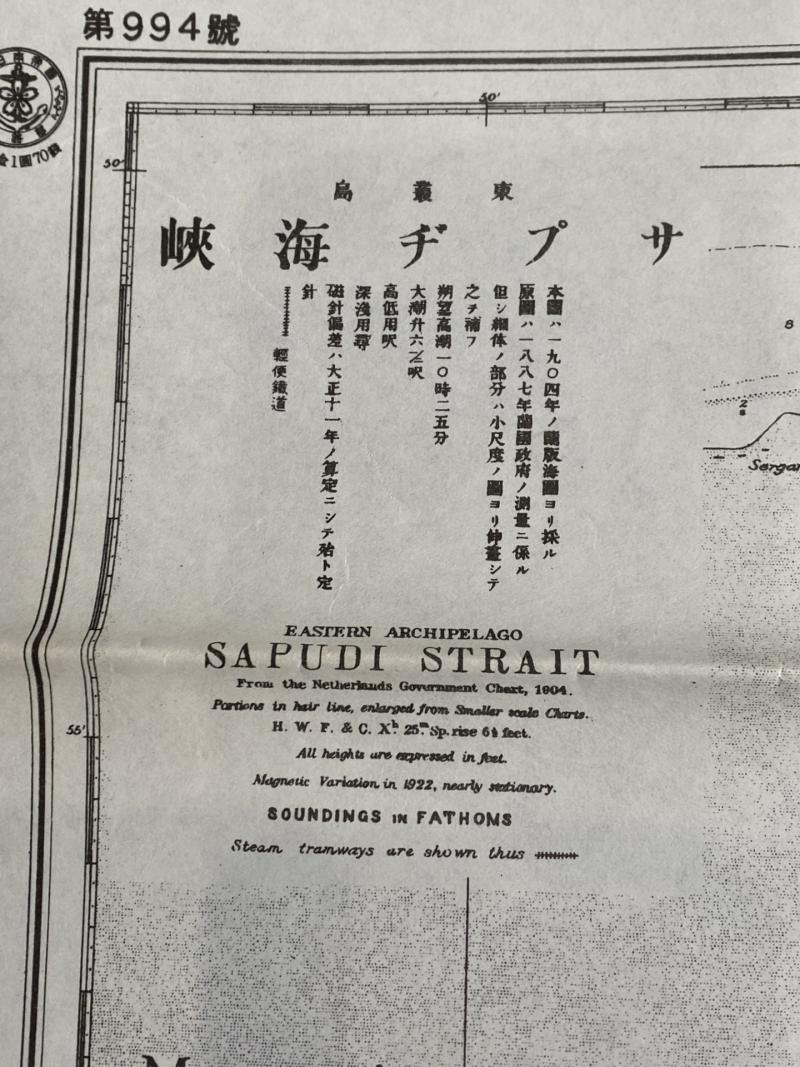 第994號
50'
50'
東叢島
サプヂ海峽
本圖ハ一九〇四年ノ蘭版海圖ヨリ採ル
原圖ハ一八八七年蘭國政府ノ測量ニ係ル
但シ細体ノ部分ハ小尺度ノ圖ヨリ伸畫シテ
之ヲ補フ
朔望高潮一〇時二五分
大潮升六½呎
高低用呎
深淺用尋
磁針偏差ハ大正十一年ノ算定ニシテ殆ト定
針
輕便鐵道
8
EASTERN ARCHIPELAGO
SAPUDI STRAIT
From the Netherlands Government Chart, 1904.
Portions in hair line, enlarged from Smaller scale Charts.
H. W. F. & C. Xʰ 25ᵐ Sp. rise 6½ feet.
All heights are expressed in feet.
Magnetic Variation in 1922, nearly stationary.
SOUNDINGS IN FATHOMS
Steam tramways are shown thus
55'